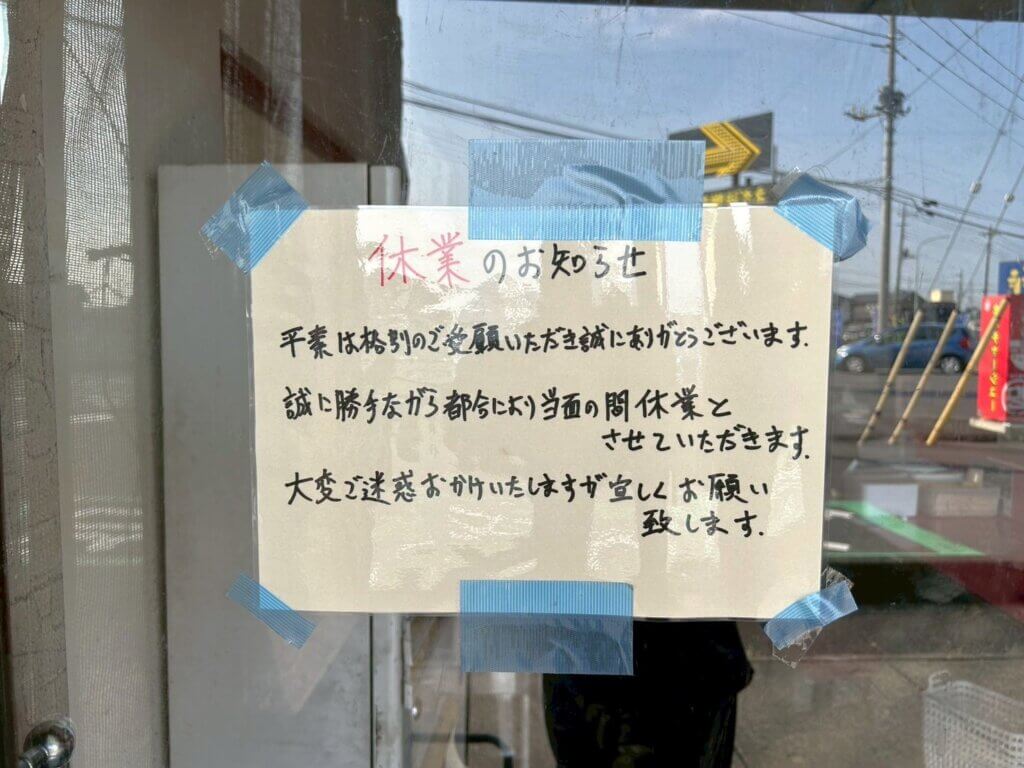 休業のお知らせ
平素は格別のご愛顧いただき誠にありがとうございます.
誠に勝手ながら都合により当面の間休業と
させていただきます.
大変ご迷惑おかけいたしますが宜しくお願い
致します.